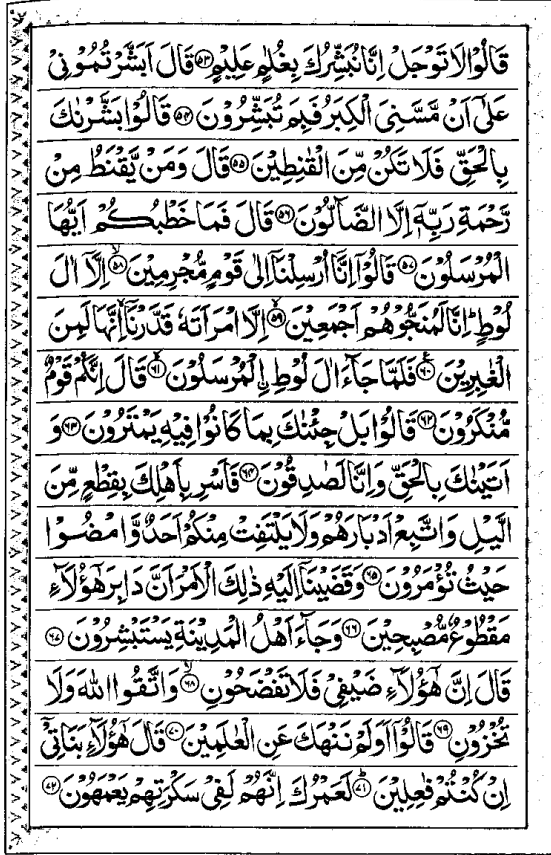 قَالُوْا لَا تَوْجَلْ اِنَّا نُبَشِّرُكَ بِغُلٰمٍ عَلِيْمٍ ۝۵۳ قَالَ اَبَشَّرْتُمُوْنِيْ
عَلٰٓى اَنْ مَّسَّنِيَ الْكِبَرُ فَبِمَ تُبَشِّرُوْنَ ۝۵۴ قَالُوْا بَشَّرْنٰكَ
بِالْحَقِّ فَلَا تَكُنْ مِّنَ الْقٰنِطِيْنَ ۝۵۵ قَالَ وَمَنْ يَّقْنَطُ مِنْ
رَّحْمَةِ رَبِّهٖٓ اِلَّا الضَّآلُّوْنَ ۝۵۶ قَالَ فَمَا خَطْبُكُمْ اَيُّهَا
الْمُرْسَلُوْنَ ۝۵۷ قَالُوْٓا اِنَّآ اُرْسِلْنَآ اِلٰى قَوْمٍ مُّجْرِمِيْنَ ۝۵۸ اِلَّآ اٰلَ
لُوْطٍ ؕ اِنَّا لَمُنَجُّوْهُمْ اَجْمَعِيْنَ ۝۵۹ اِلَّا امْرَاَتَهٗ قَدَّرْنَآ ۙ اِنَّهَا لَمِنَ
الْغٰبِرِيْنَ ۝۶۰ فَلَمَّا جَآءَ اٰلَ لُوْطِ ۨالْمُرْسَلُوْنَ ۝۶۱ قَالَ اِنَّكُمْ قَوْمٌ
مُّنْكَرُوْنَ ۝۶۲ قَالُوْا بَلْ جِئْنٰكَ بِمَا كَانُوْا فِيْهِ يَمْتَرُوْنَ ۝۶۳ وَ
اَتَيْنٰكَ بِالْحَقِّ وَاِنَّا لَصٰدِقُوْنَ ۝۶۴ فَاَسْرِ بِاَهْلِكَ بِقِطْعٍ مِّنَ
الَّيْلِ وَاتَّبِعْ اَدْبَارَهُمْ وَلَا يَلْتَفِتْ مِنْكُمْ اَحَدٌ وَّامْضُوْا
حَيْثُ تُؤْمَرُوْنَ ۝۶۵ وَقَضَيْنَآ اِلَيْهِ ذٰلِكَ الْاَمْرَ اَنَّ دَابِرَ هٰٓؤُلَآءِ
مَقْطُوْعٌ مُّصْبِحِيْنَ ۝۶۶ وَجَآءَ اَهْلُ الْمَدِيْنَةِ يَسْتَبْشِرُوْنَ ۝۶۷
قَالَ اِنَّ هٰٓؤُلَآءِ ضَيْفِيْ فَلَا تَفْضَحُوْنِ ۝۶۸ وَاتَّقُوا اللّٰهَ وَلَا
تُخْزُوْنِ ۝۶۹ قَالُوْٓا اَوَلَمْ نَنْهَكَ عَنِ الْعٰلَمِيْنَ ۝۷۰ قَالَ هٰٓؤُلَآءِ بَنٰتِيْٓ
اِنْ كُنْتُمْ فٰعِلِيْنَ ۝۷۱ لَعَمْرُكَ اِنَّهُمْ لَفِيْ سَكْرَتِهِمْ يَعْمَهُوْنَ ۝۷۲